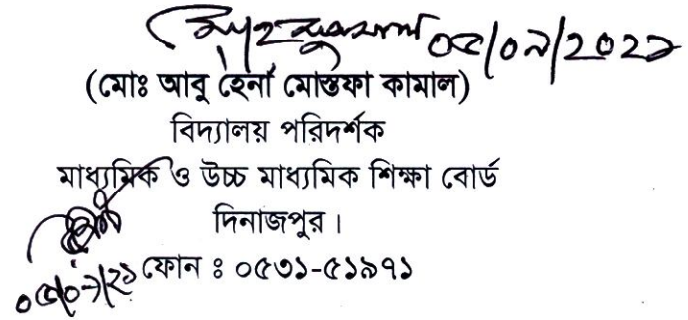 ০৫/০৯/২০২১
(মোঃ আবু হেনা মোস্তফা কামাল)
বিদ্যালয় পরিদর্শক
মাধ্যমিক ও উচ্চ মাধ্যমিক শিক্ষা বোর্ড
দিনাজপুর।
ফোন ঃ ০৫৩১-৫১৯৭১